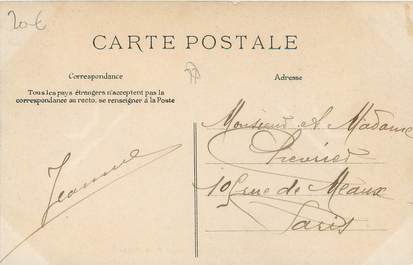 20 €
CARTE POSTALE
Correspondance
Tous les pays étrangers n'acceptent pas la
correspondance au recto, se renseigner à la Poste
77
Adresse
Jeanne
Monsieur et Madame
Chevrier
rue de Meaux
Paris